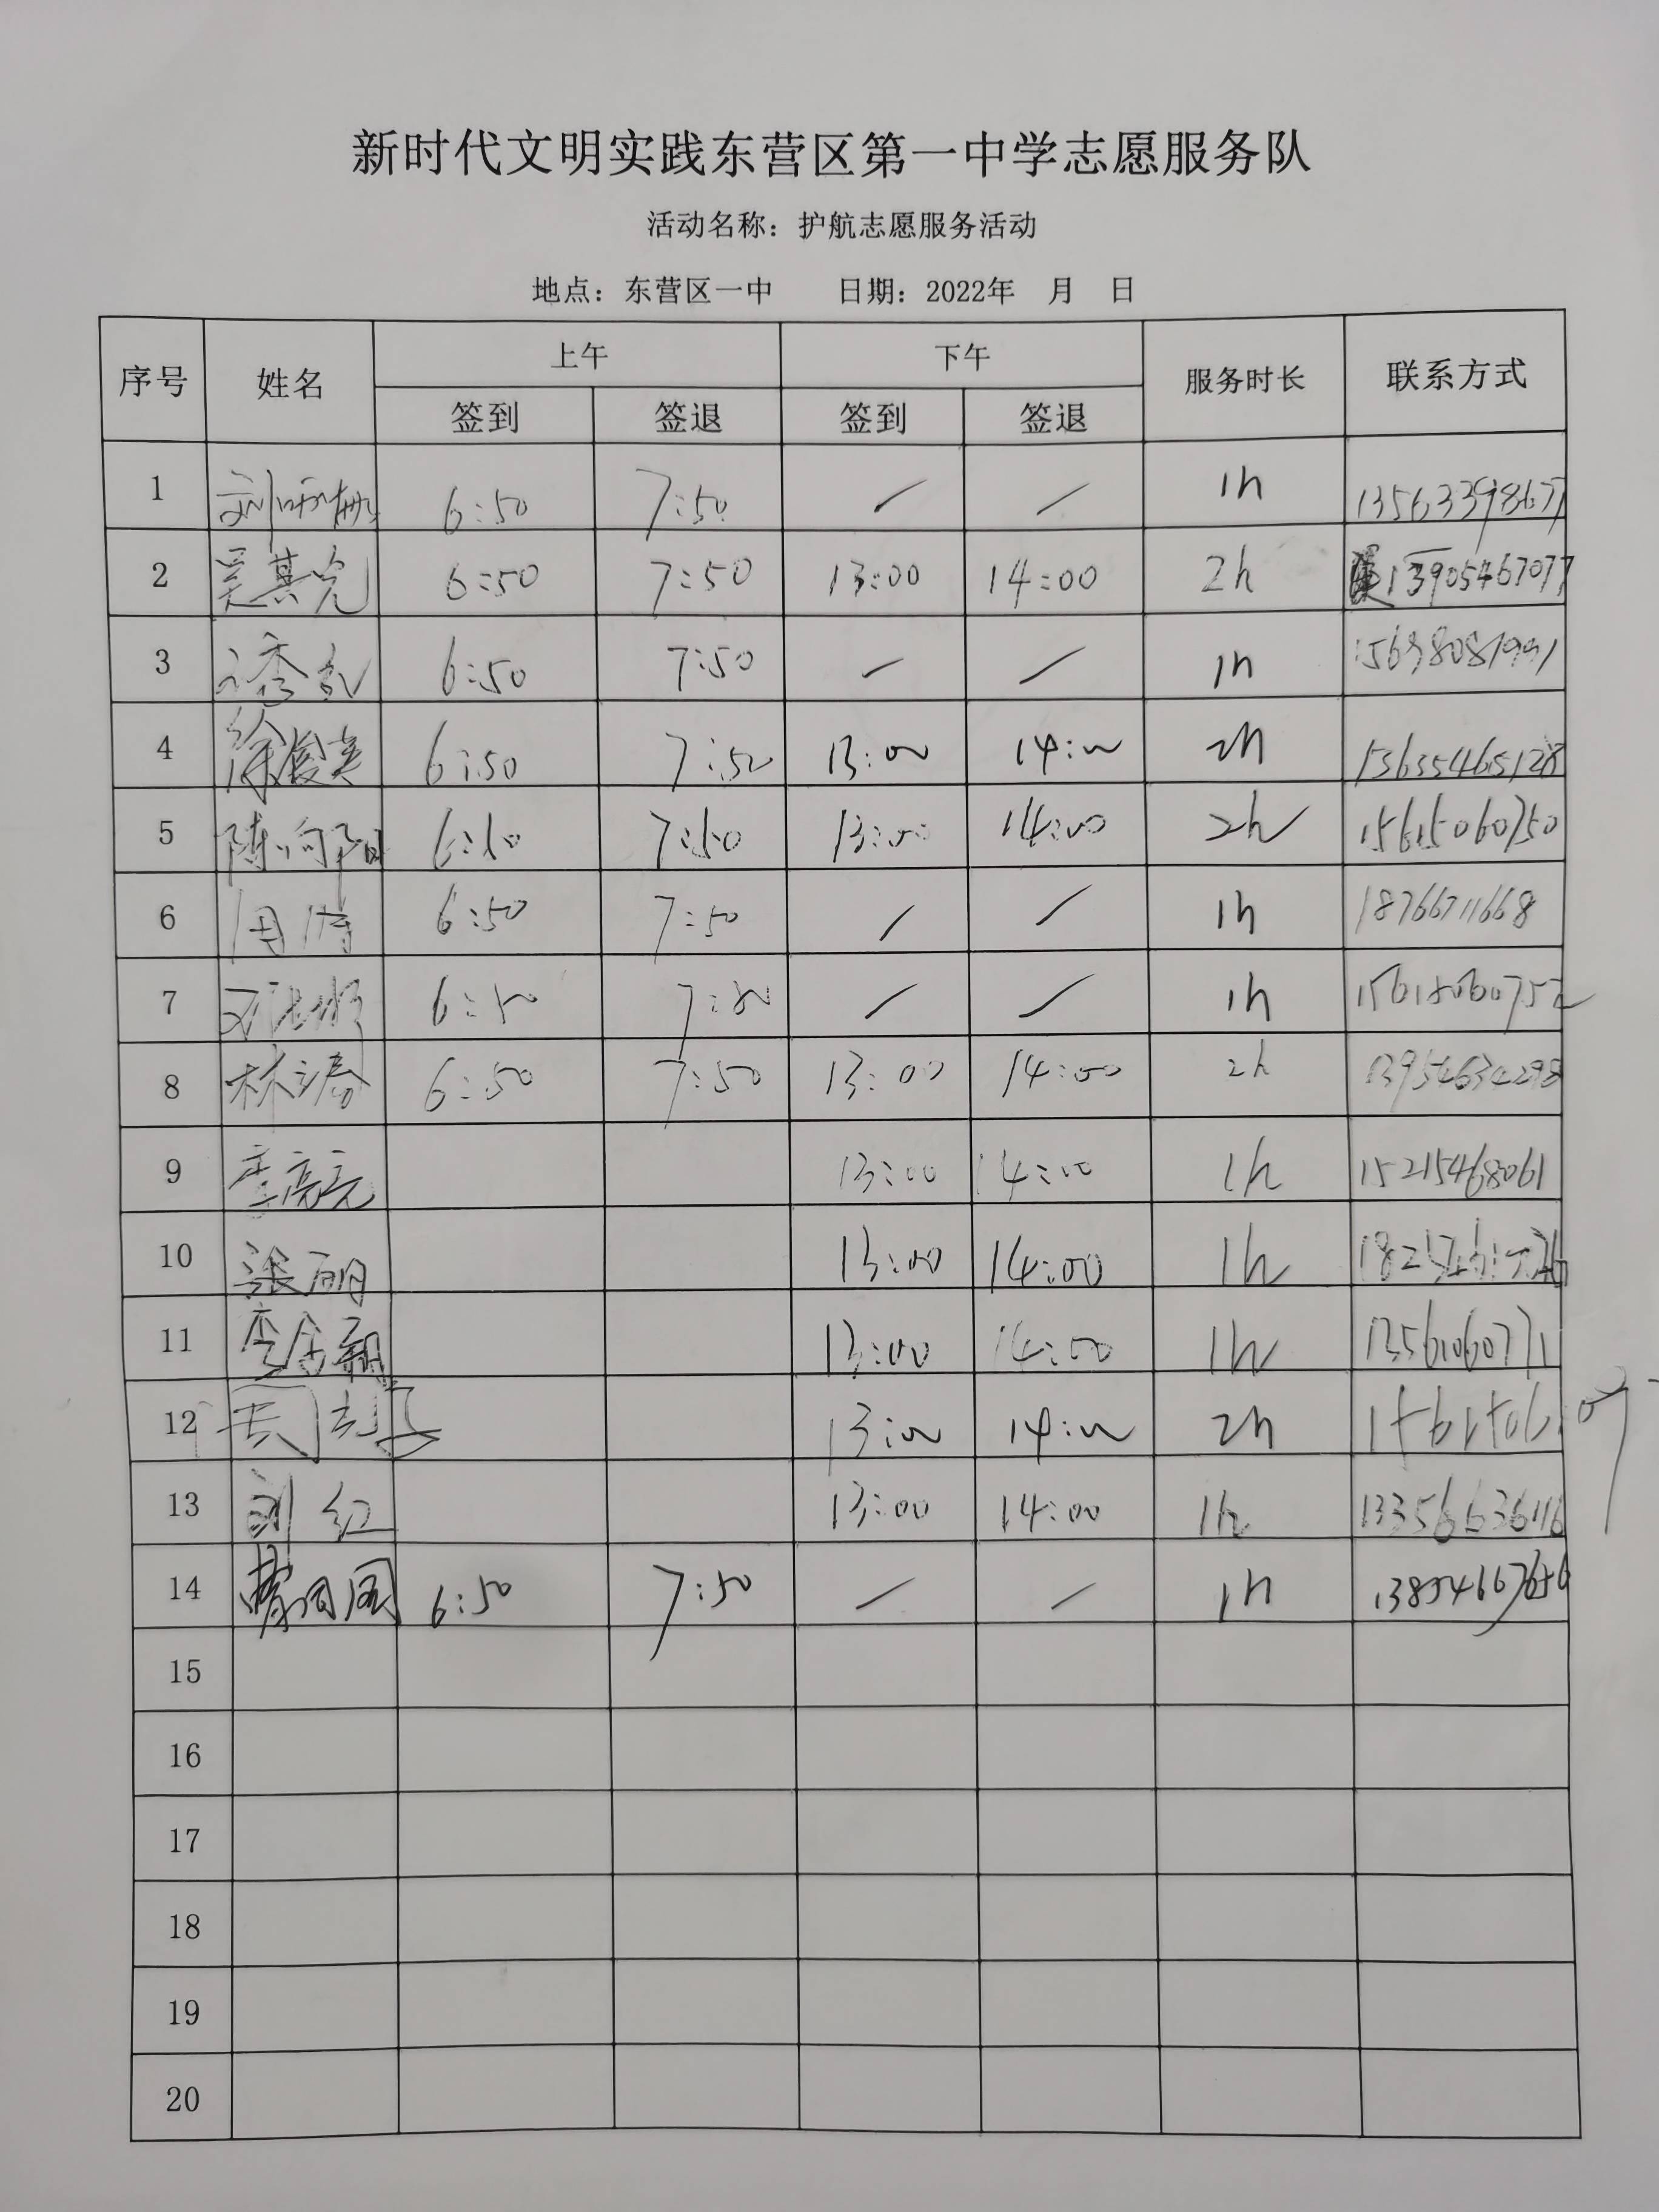 新时代文明实践东营区第一中学志愿服务队
活动名称：护航志愿服务活动
地点：东营区一中 日期：2022年 月 日
序号 姓名 上午 下午 服务时长 联系方式
签到 签退 签到 签退
1 6:50 7:50 / / 1h 13563398677
2 吴其完 6:50 7:50 13:00 14:00 2h 13905467077
3 6:50 7:50 — / 1h
4 徐俊美 6:50 7:50 13:00 14:00 2h 13635465128
5 陈向阳 6:50 7:50 13:00 14:00 2h 15615060750
6 周涛 6:50 7:50 / / 1h 18766711668
7 6:50 7:50 / / 1h 15615060752
8 林春 6:50 7:50 13:00 14:00 2h 13954634298
9 李亮亮 13:00 14:00 1h 15215468061
10 张丽 13:00 14:00 1h
11 李金翔 13:00 14:00 1h 13561060771
12 13:00 14:00 2h
13 刘红 13:00 14:00 1h 13356636116
14 6:50 7:50 / / 1h 13854667656
15
16
17
18
19
20